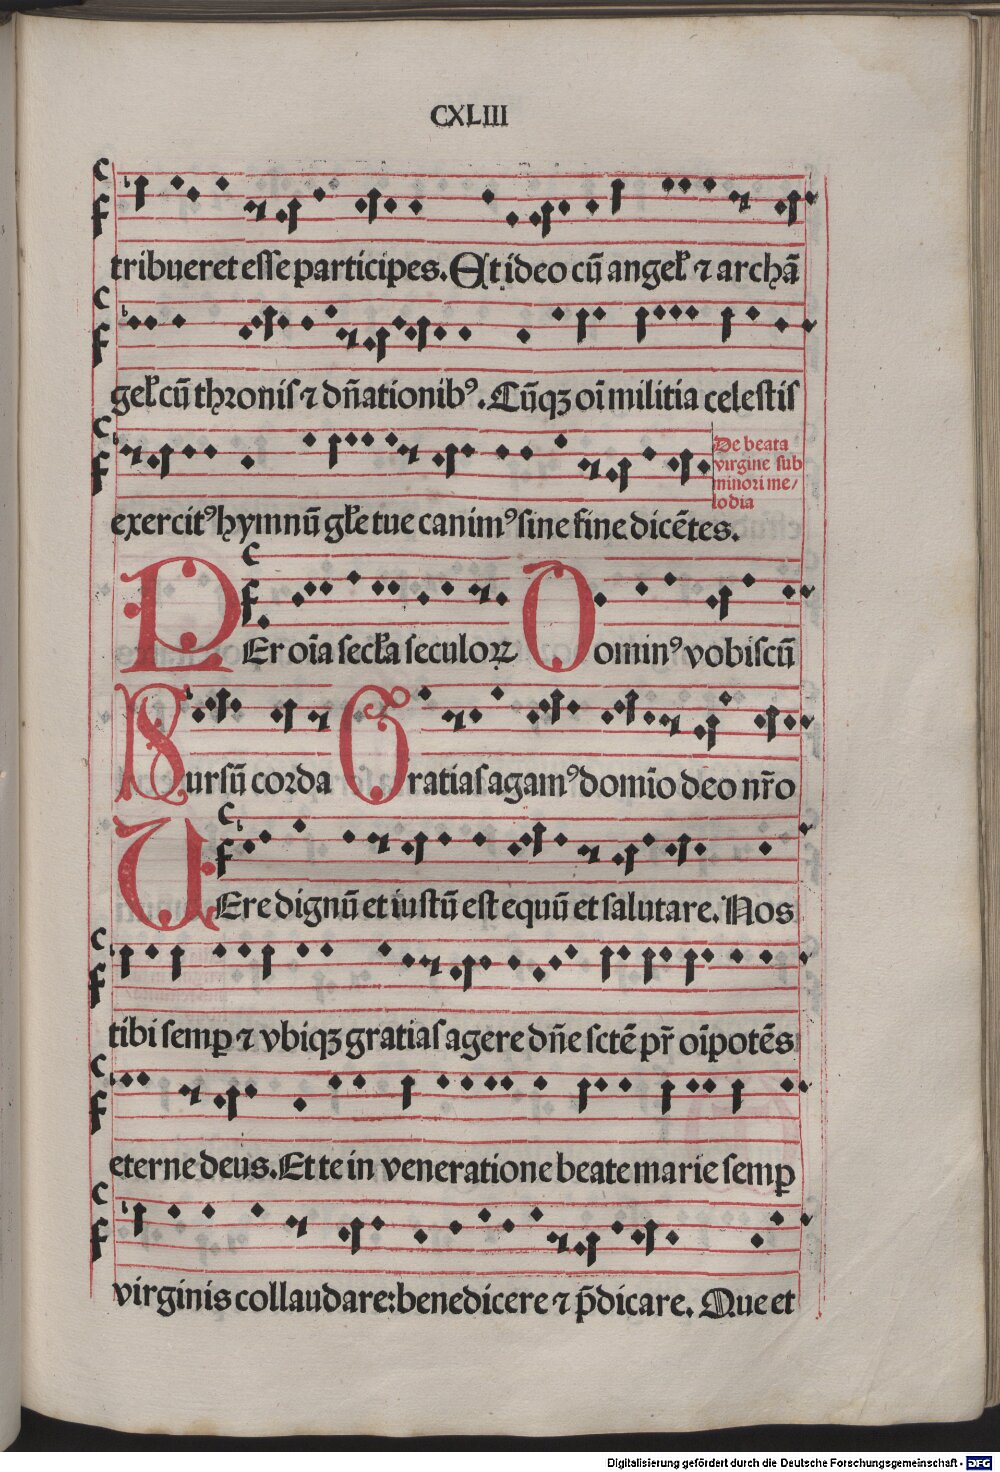 CXLIII
tribueret esse participes. Et ideo cū angeł ⁊ archā
geł cū thronis ⁊ dn̄ationibꝰ. Cūqꝫ oī militia celestis
De beata
virgine sub
minori me/
lodia
exercitꝰ hymnū głe tue canimꝰ sine fine dicētes.
PEr oīa secła seculoꝝ Dominꝰ vobiscū
Sursū corda Gratias agamꝰ domīo deo nr̄o
UEre dignū et iustū est equū et salutare. Nos
tibi semꝑ ⁊ vbiqꝫ gratias agere dn̄e sctē pr̄ oīpotēs
eterne deus. Et te in veneratione beate marie semꝑ
virginis collaudare: benedicere ⁊ p̄dicare. Que et
Digitalisierung gefördert durch die Deutsche Forschungsgemeinschaft - DFG